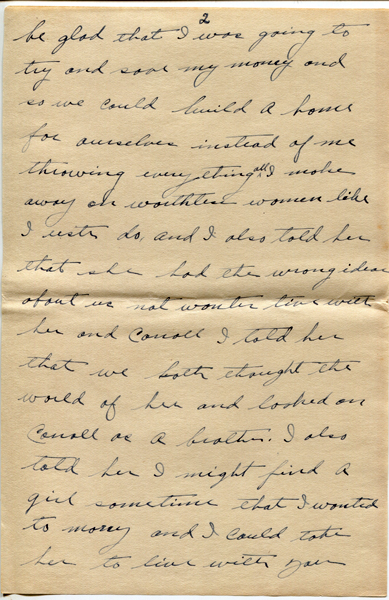 2
be glad that I was going to
try and save my money and
so we could build a home
for ourselves instead of me
throwing everything all I make
away on worthless women like
I ustr do. and I also told her
that she had the wrong idear
about us not wonter live with
her and Conall I told her
that we both thought the
world of her and looked on
Conall as a brother. I also
told her I might find a
girl sometime that I wonted
to marry and I could take
her to live with you